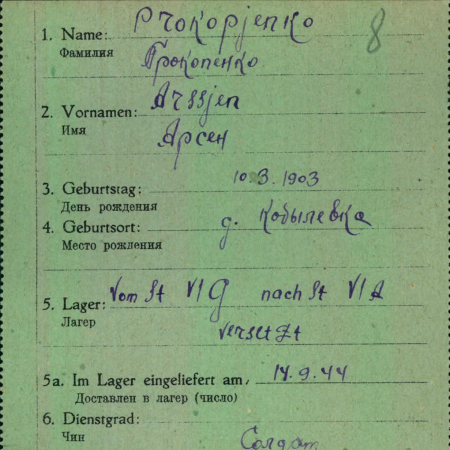 Prokopjenko
8
1. Name:
Фамилия
Прокопенко
Arssjen
2. Vornamen:
Имя
Арсен
3. Geburtstag: 10.3.1903
День рождения
4. Geburtsort: д. Кобылевка
Место рождения
5. Lager: Vom St VI G nach St VI A
Лагер
versetzt
5a. Im Lager eingeliefert am, 14.9.44
Доставлен в лагер (число)
6. Dienstgrad:
Чин
Солдат